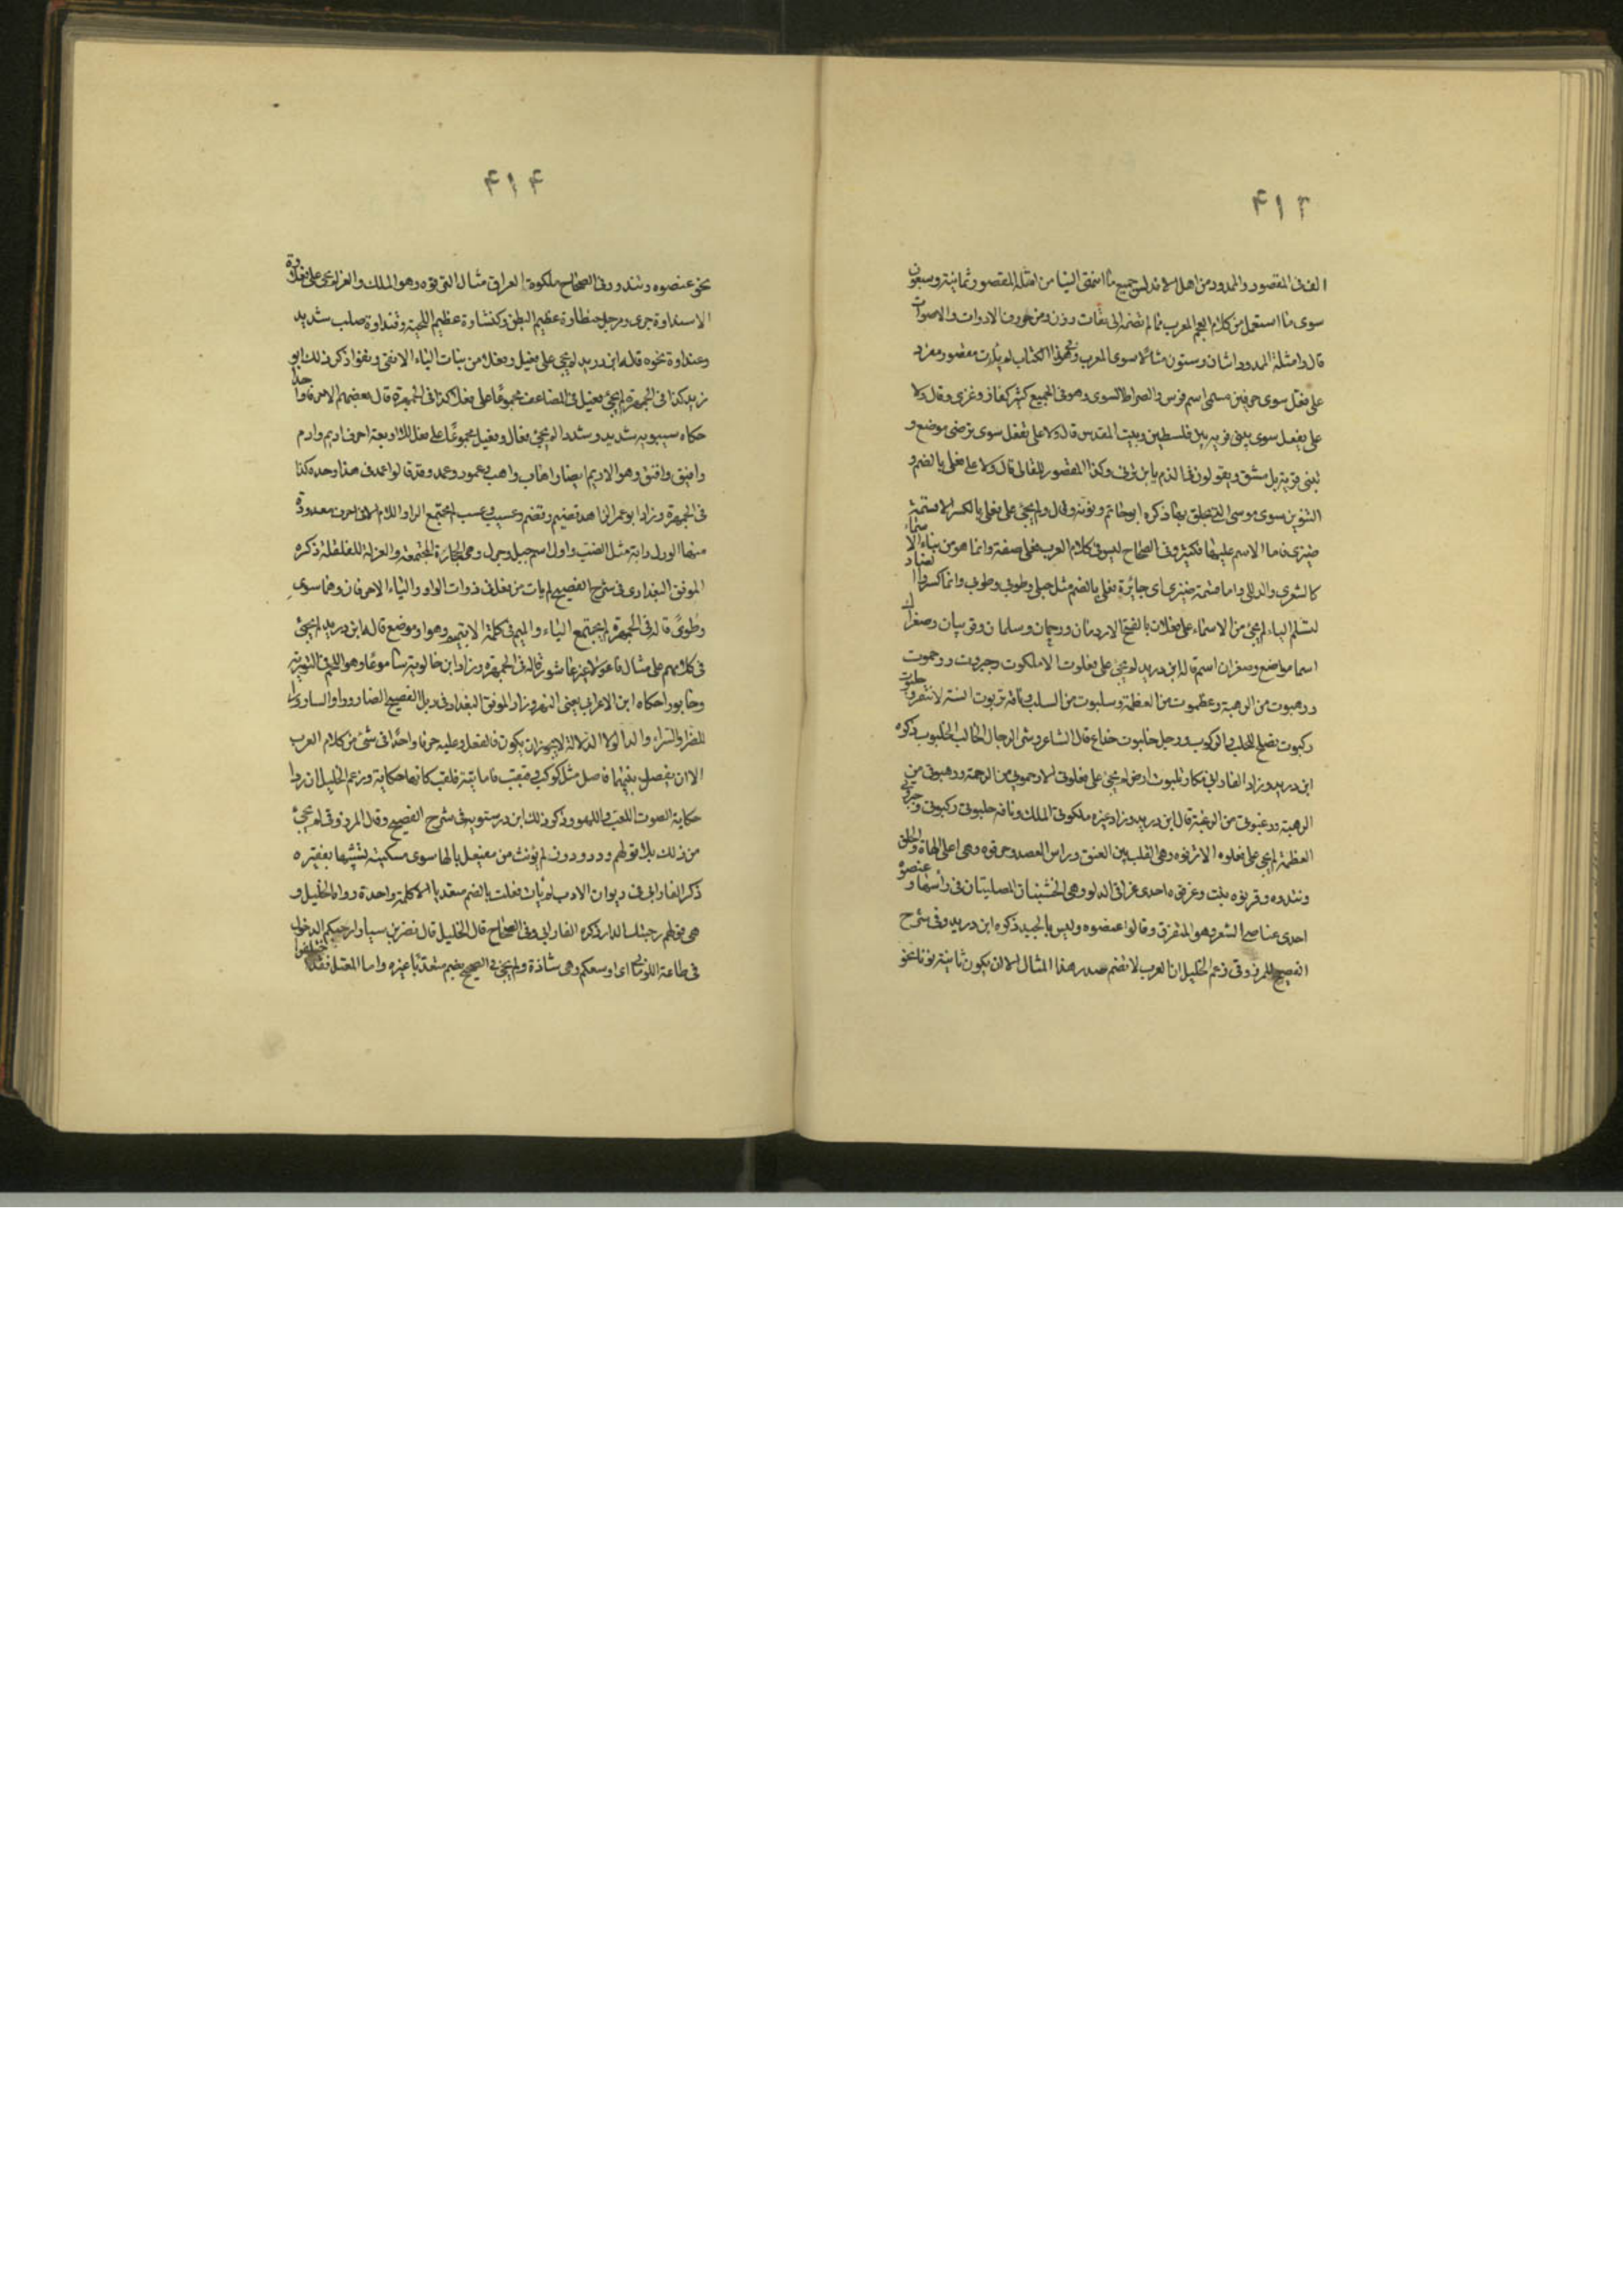 ٤١٣
الف فى المقصور والممدود من اهل الاندلس جميع ما انتهى الينا من امثلة المقصور ثمانية وسبعون
سوى ما استعمل من كلام العجم المعرب مما لم نضفه الى ووزن ومن حروف الادوات والاصوات
قال وامثلة الممدود اثنان وستون مثالا سوى المعرب الكتاب لم يأت مقصور مفرد
على سوى حرفين اسم فرس والصراط السوى وهو فى الجميع كثير كغاز وغزى وقال ولا
على يفعل سوى يبنى قرية بين فلسطين وبيت المقدس قال ولا على تفعل سوى ترضى موضع و
تبنى قرية بدمشق ويقولون فى الذم يا ابن ترنى وكذا المقصور للقالى قال ولا على فعلى بالضم و
التنوين سوى موسى التى يحلق بها ذكره ابو حاتم وقال ولم يجئ على فعلى بالكسر الا قسمة
ضيزى فاما الاسم عليها فكثير وفى الصحاح ليس فى كلام العرب فعلى صفة وانما هو من بناء الاسماء
كالشعرى والدفلى واما قسمة ضيزى اى جائرة فعلى بالضم مثل حبلى وطوبى وانما كسروا الضاد
لتسلم الياء لم يجئ من الاسماء على فعلان بالفتح الا ورحمان وسلمان وصفران
اسما مواضع وصفران اسم قاله ابن دريد لم يجئ على فعلوت الا ملكوت وجبروت ورحموت
ورهبوت من الرهبة وعظموت من العظمة وسلبوت من السلب وناقة تربوت
ركبوت تصلح للحلب والركوب ورجل خلبوت خداع قال الشاعر وشر الرجال الخالب الخلبوت ذكره
ابن دريد وزاد الفارابى ارض لم يجئ على فعلوتى الا رحموتى من الرحمة ورهبوتى من
الرهبة ورغبوتى من الرغبة قال ابن دريد وزاد غيره ملكوتى الملك وناقة حلبوتى ركبوتى وجبروتى
العظمة لم يجئ على فعلوه الا ترقوه وهى القلب بين العنق وراس العضد وحرقوه وهى اعلى اللهاة والحلق
وثندوه وقرنوه نبت وعرقوه احدى عراقى الدلو وهى الخشبتان المصلبتان فى رأسها وعنصوه
احدى عناصى الشعر وهو المتفرق وقالوا عنصوه وليس بالجيد ذكره ابن دريد وفى شرح
الفصيح للمرزوقى زعم الخليل ان العرب لا تضم صدر هذا المثال الا ان يكون ثانيه نونا نحو
٤١٤
نحو عنصوه وثندوه وفى الصحاح ملكوة العراق مثال الترقوه وهو الملك والعز لم يجئ على
الا سنداوة جرى ورجل حنطاوة عظيم البطن وكنثاوة عظيم اللحية وقنداوة صلب شديد
وعنداوة نحوه قاله ابن دريد لم يجئ على فعيل وفعل من بنات الياء الا ذكر ذلك ابو
زيد كذا فى الجمهرة لم يجئ فعيل فى المضاعف مجموعا على فعل كذا فى الجمهرة قال بعضهم الا حرفا واحدا
حكاه سيبويه شديد وشدد لم يجئ فعال وفعيل مجموعا على فعل الا اربعة احرف اديم وادم
وافيق وافق وهو الاديم ايضا واهاب واهب وعمود وعمد وقد قالوا عمد فى هذا وحده كذا
فى الجمهرة وزاد ابو عمر الزاهد قضيم وقضم وعسيب وعسب لم تجتمع الراء واللام الا فى احرف معدودة
منها الورل دابة مثل الضب واول اسم جبل وجرل وهى الحجارة المجتمعة والغرلة للقلفة ذكره
الموفق البغدادى فى شرح الفصيح لم يأت من فعل فى ذوات الواو والياء الا حرفان وهما سوى
وطوى قاله فى الجمهرة لم تجتمع الياء والميم فى كلمة الا وهو موضع قاله ابن دريد لم يجئ
فى كلامهم على مثال فاعولا غير عاشورا قاله فى الجمهرة وزاد ابن خالويه ساموعا وهو اللحم فى التوراة
وخابورا حكاه ابن الاعرابى يعنى النهر وزاد الموفق البغدادى فى ذيل الفصيح الضاروراء والساروراء
للضراء والسراء والدالولاء الدلالة لا يجوز ان يكون فاء الفعل وعينه حرفا واحدا فى شئ من كلام العرب
الا ان يفصل بينهما فاصل مثل كوكب وقيقب فاما فلقب كانها حكاية وزعم الخليل ان ددا
حكاية الصوت اللعب واللهو وذكر ذلك ابن درستويه فى شرح الفصيح وقال المرزوقى لم يجئ
من ذلك الا قولهم ددن وددد لم يؤنث من مفعيل بالها سوى مسكينة تشبيها بفقيره
ذكر الفارابى فى ديوان الادب لم يأت فعلت بالضم متعديا الا كلمة واحدة رواها الخليل و
هى قولهم رحبتك الدار ذكره الفارابى وفى الصحاح قال الخليل قال نصر بن سيار ارحبكم الدخول
فى طاعة اى اوسعكم وهى شاذة ولم يجئ فى الصحيح بضم متعديا غيره واما المعتل فقد